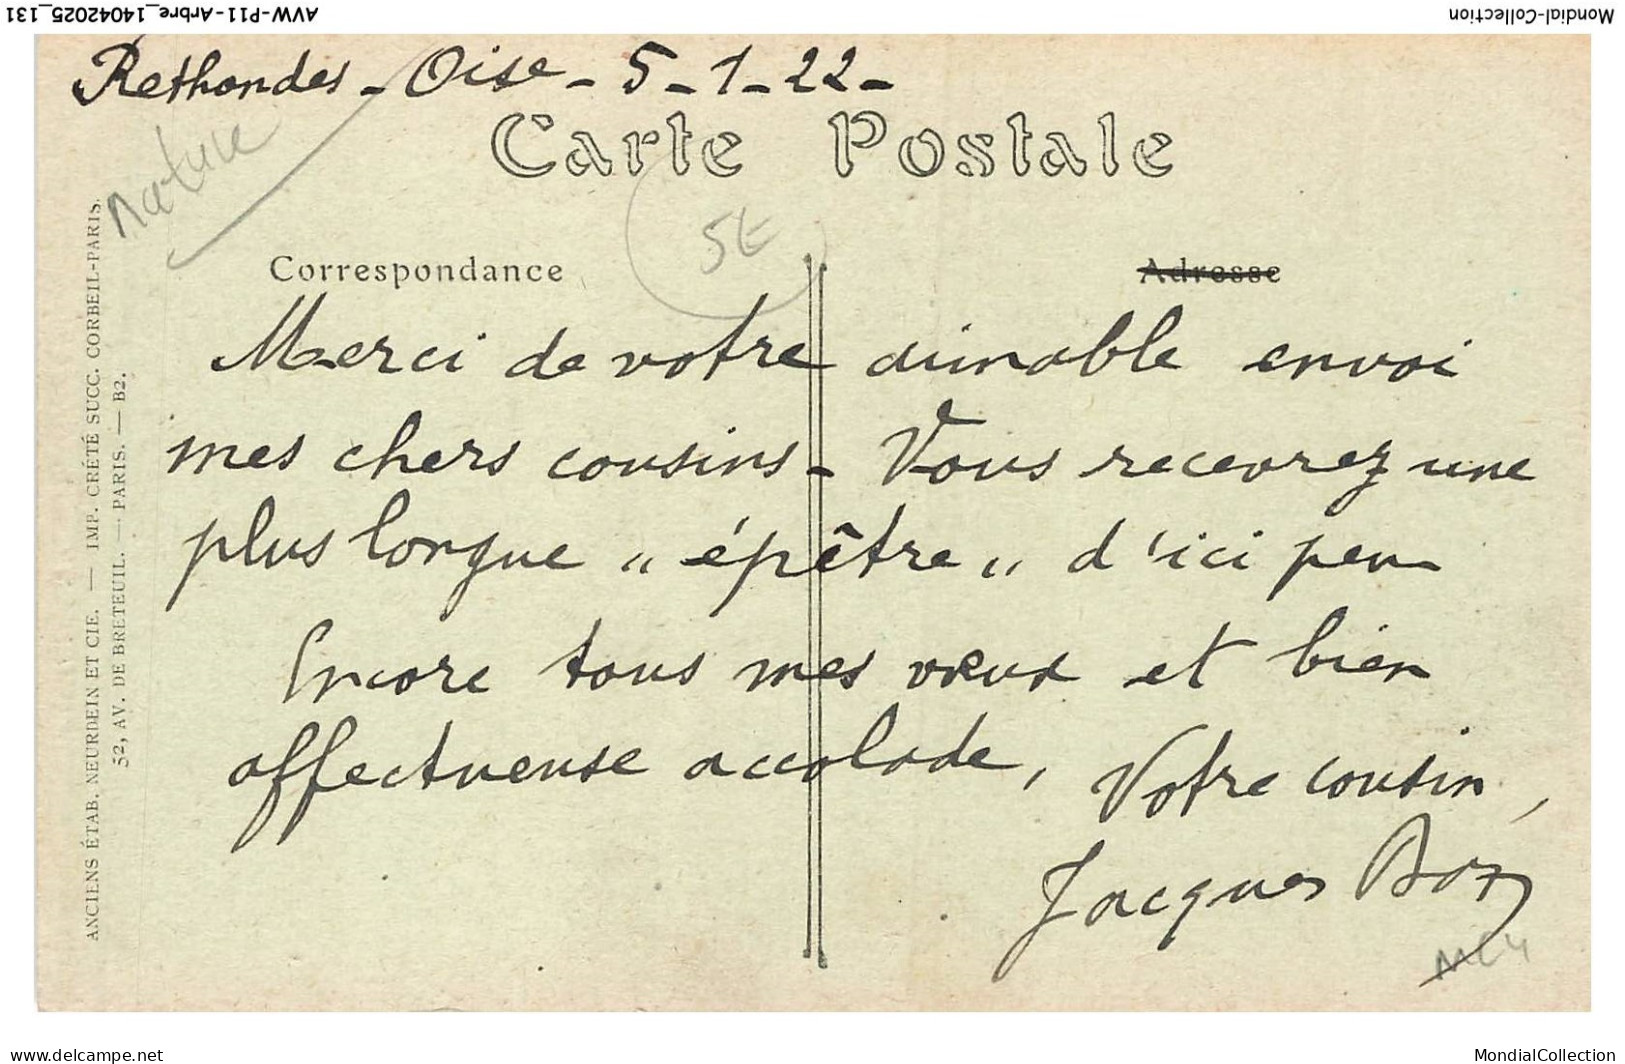 Mondial-Collection
AVW-P11-Arbre_14042025_131
Rethondes - Oise - 5-1-22-
Carte Postale
nature
5E
Correspondance
Adresse
Merci de votre aimable envoi
mes chers cousins - Vous recevrez une
plus longue " épître " d'ici peu
Encore tous mes vœux et bien
affectueuse accolade, Votre cousin,
Jacques
ANCIENS ÉTAB. NEURDEIN ET CIE. — IMP. CRÉTÉ SUCC. CORBEIL-PARIS.
52, AV. DE BRETEUIL. — PARIS. — B2.
https://www.delcampe.net
MondialCollection